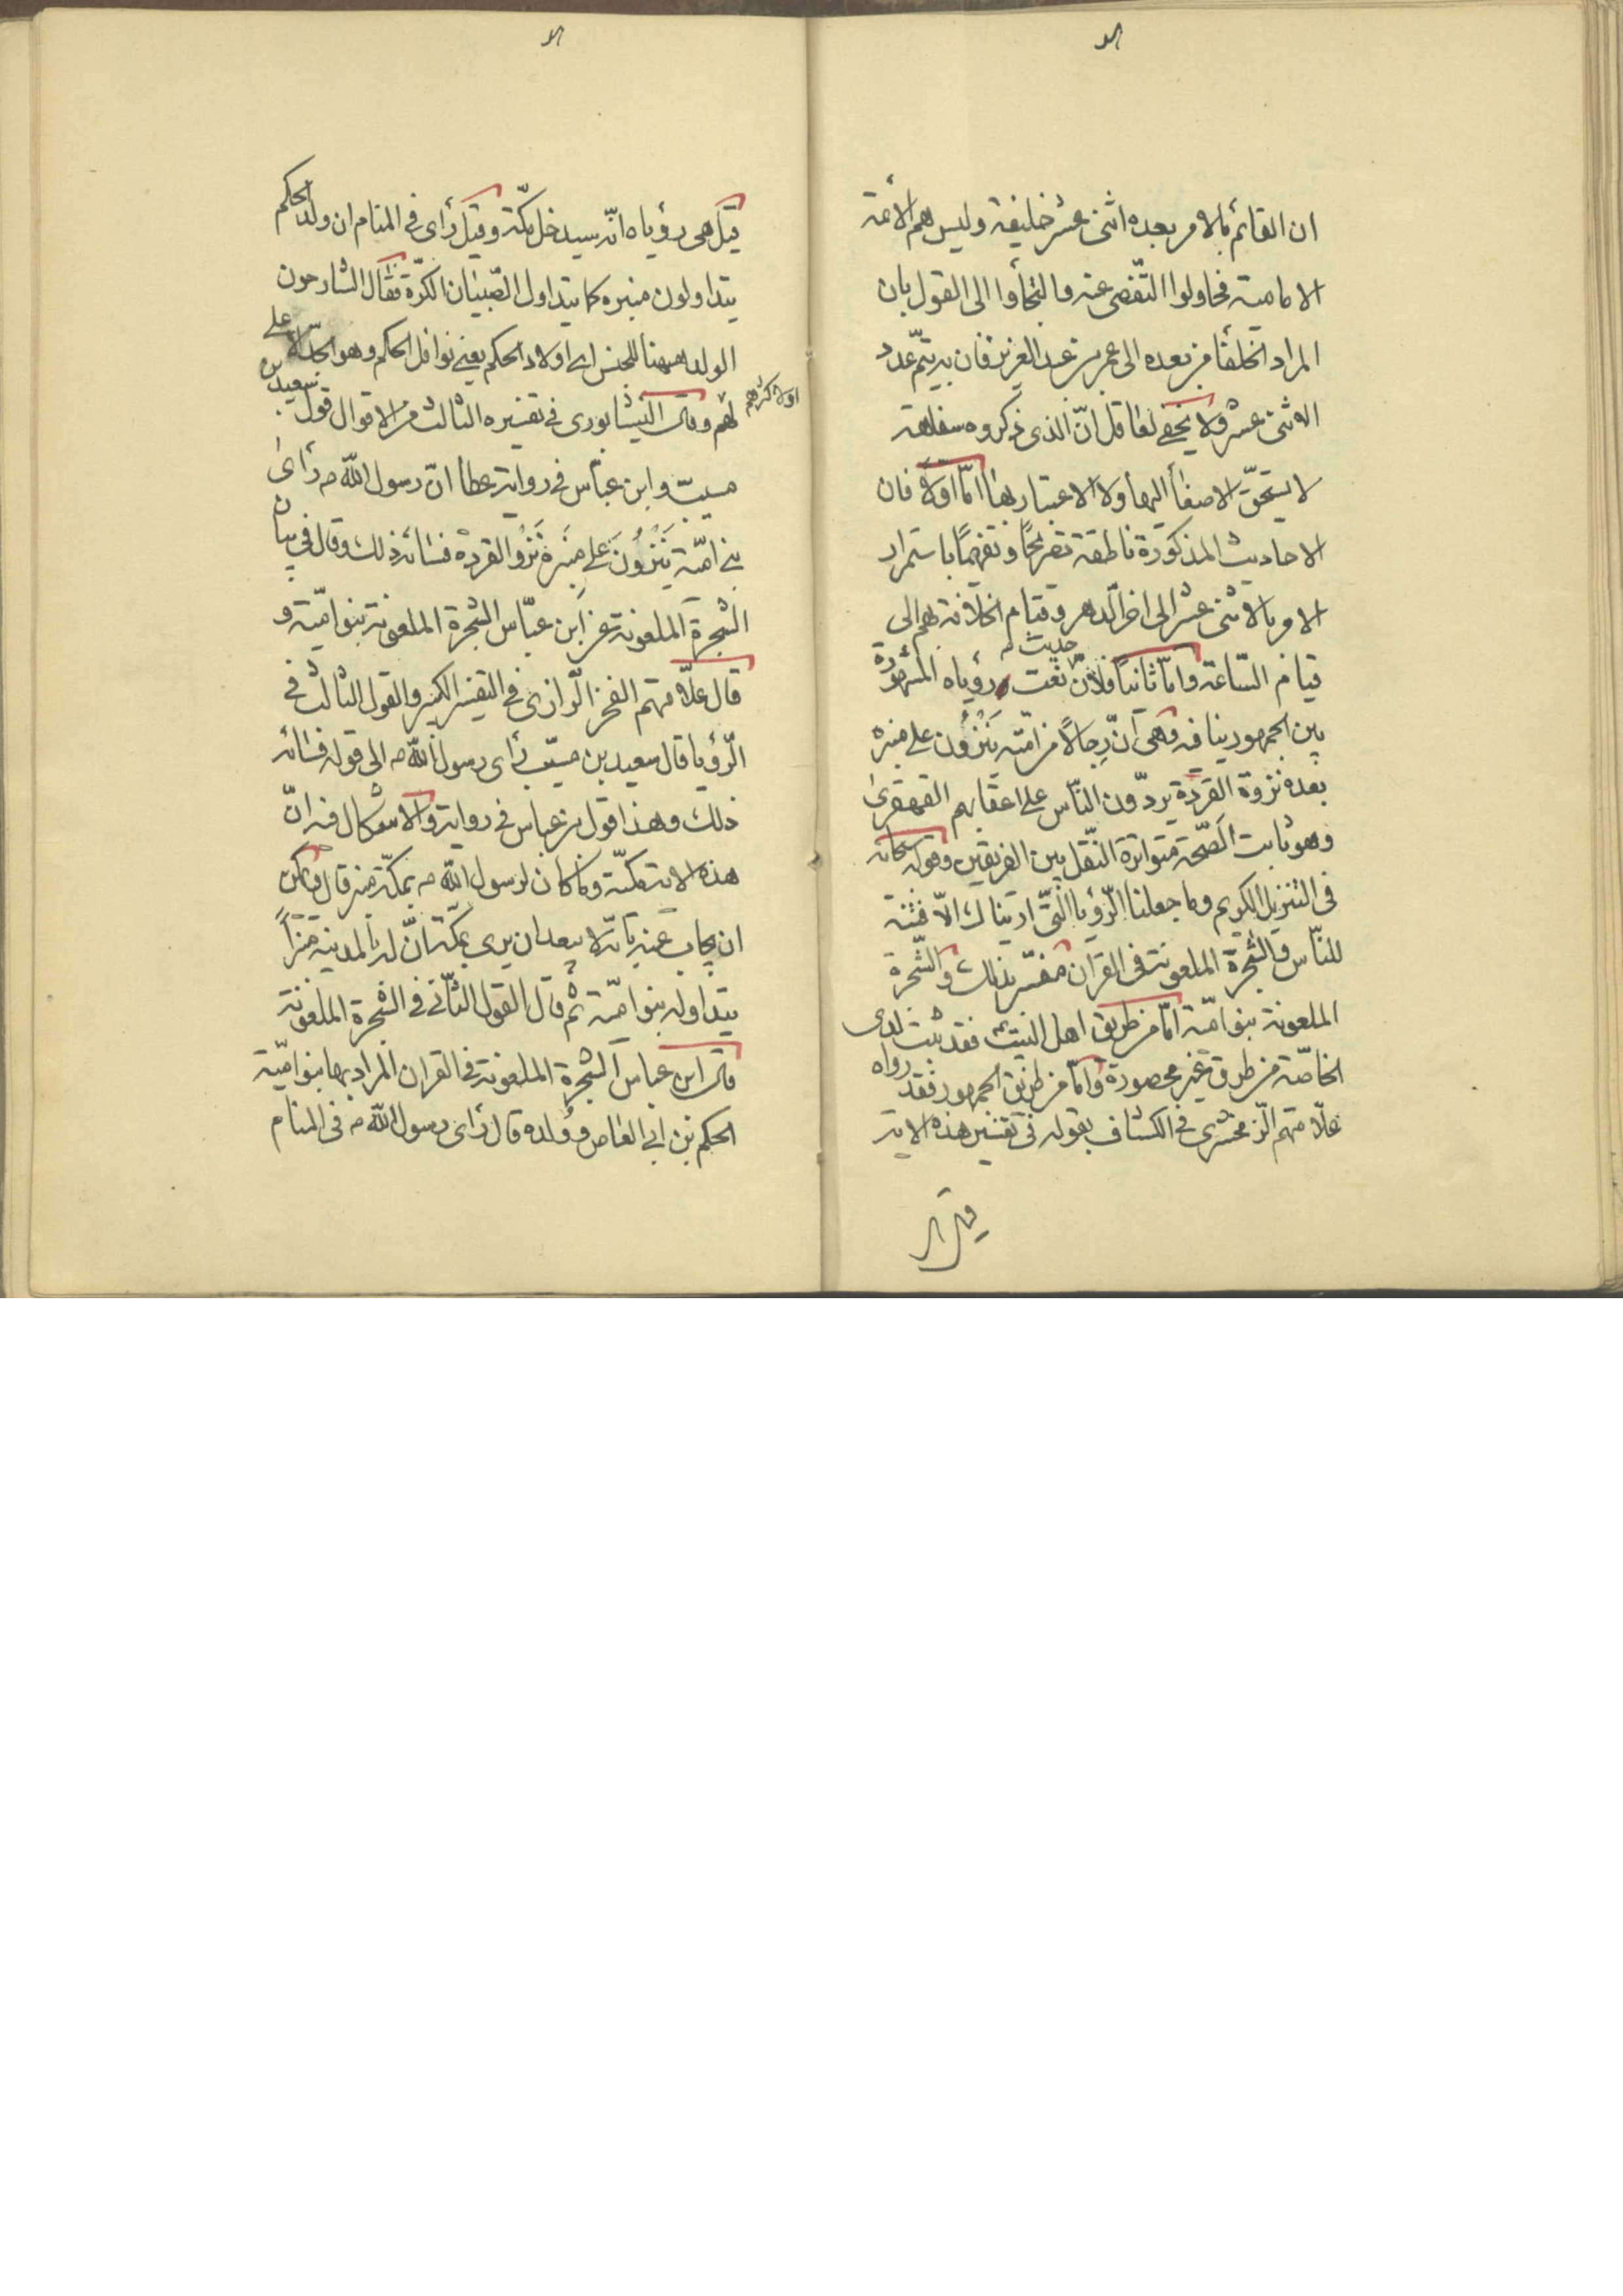 ان القائم بالامر بعده اثنى عشر خليفة وليس هم الأئمة
الامامية فحاولوا التّفصى عنه والتجأوا الى القول بان
المراد الخلفأ من بعده الى عمر بن عبد العزيز فان به يتم عدد
الاثنى عشر ولا يخفى لعاقل انّ الذى ذكروه سفاهة
لا يستحقّ الاصغأ اليها ولا الاعتبار بها امّا اوّلا فان
الاحاديث المذكورة ناطقة تصريحًا وتفهيمًا باستمرار
الامر بالاثنى عشر الى اخر الدهر وقيام الخلافة بهم الى
قيام السّاعة وامّا ثانيًا فلانّ حديث رؤياه المشهورة
بين الجمهور ينافيه وهى انّ رجالًا من امّته ينزون على منبره
بعده نزوة القردة يردّون النّاس على اعقابهم القهقرىٰ
وهو ثابت الصّحة متواترة النّقل بين الفريقين وقوله سبحانه
فى التنزيل الكريم وما جعلنا الرّؤيا الّتى اريناك الّا فتنة
للنّاس والشّجرة الملعونة فى القران مفسّر بذلك والشّجرة
الملعونة بنو اميّة امّا من طريق اهل البيت فقد ثبت لدى
الخاصّة من طرق غير محصورة وامّا من طريق الجمهور فقد رواه
علّامتهم الزّمخشرى فى الكشاف بقوله فى تفسير هذه الاية
قيل
قيل هى رؤياه انّه سيدخل مكّة وقيل رأى فى المنام ان ولد الحكم
يتداولون منبره كما يتداول الصّبيان الكرّة فقال الشارحون
الولد ههنا للجنس اى اولاد الحكم يعنى نوافل الحكم وهو الجدّ الاعلى
اولاكثرهم
لهم وقال النيشابورى فى تفسيره الثالث من الاقوال قول سعيد بن
مسيب وابن عبّاس فى رواية عطأ انّ رسول الله ص رأى
بنى اميّة يَنْزُونَ على منبره نَزْوَ القردة فسائه ذلك وقال فى بيان
الشجرة الملعونة عن ابن عبّاس الشجرة الملعونة بنو اميّة و
قال علّامتهم الفخر الرّازى فى التفسير الكبير والقول الثالث فى
الرّؤيا قال سعيد بن مسيّب رأى رسول الله ص الى قوله فسائه
ذلك وهذا قول بن عباس فى رواية والاشكال فيه انّ
هذه الاية مكيّة وما كان لرسول الله ص بمكّة منبر قال ويمكن
ان يجاب عنه بانّه لا يبعد ان يرى بمكّة انّ له بالمدينة منبرًا
يتداوله بنو اميّة ثم قال القول الثّانى فى الشجرة الملعونة
قال ابن عباس الشجرة الملعونة فى القران المراد بها بنو اميّة
الحكم بن ابى العاص وولده قال رأى رسول الله ص فى المنام